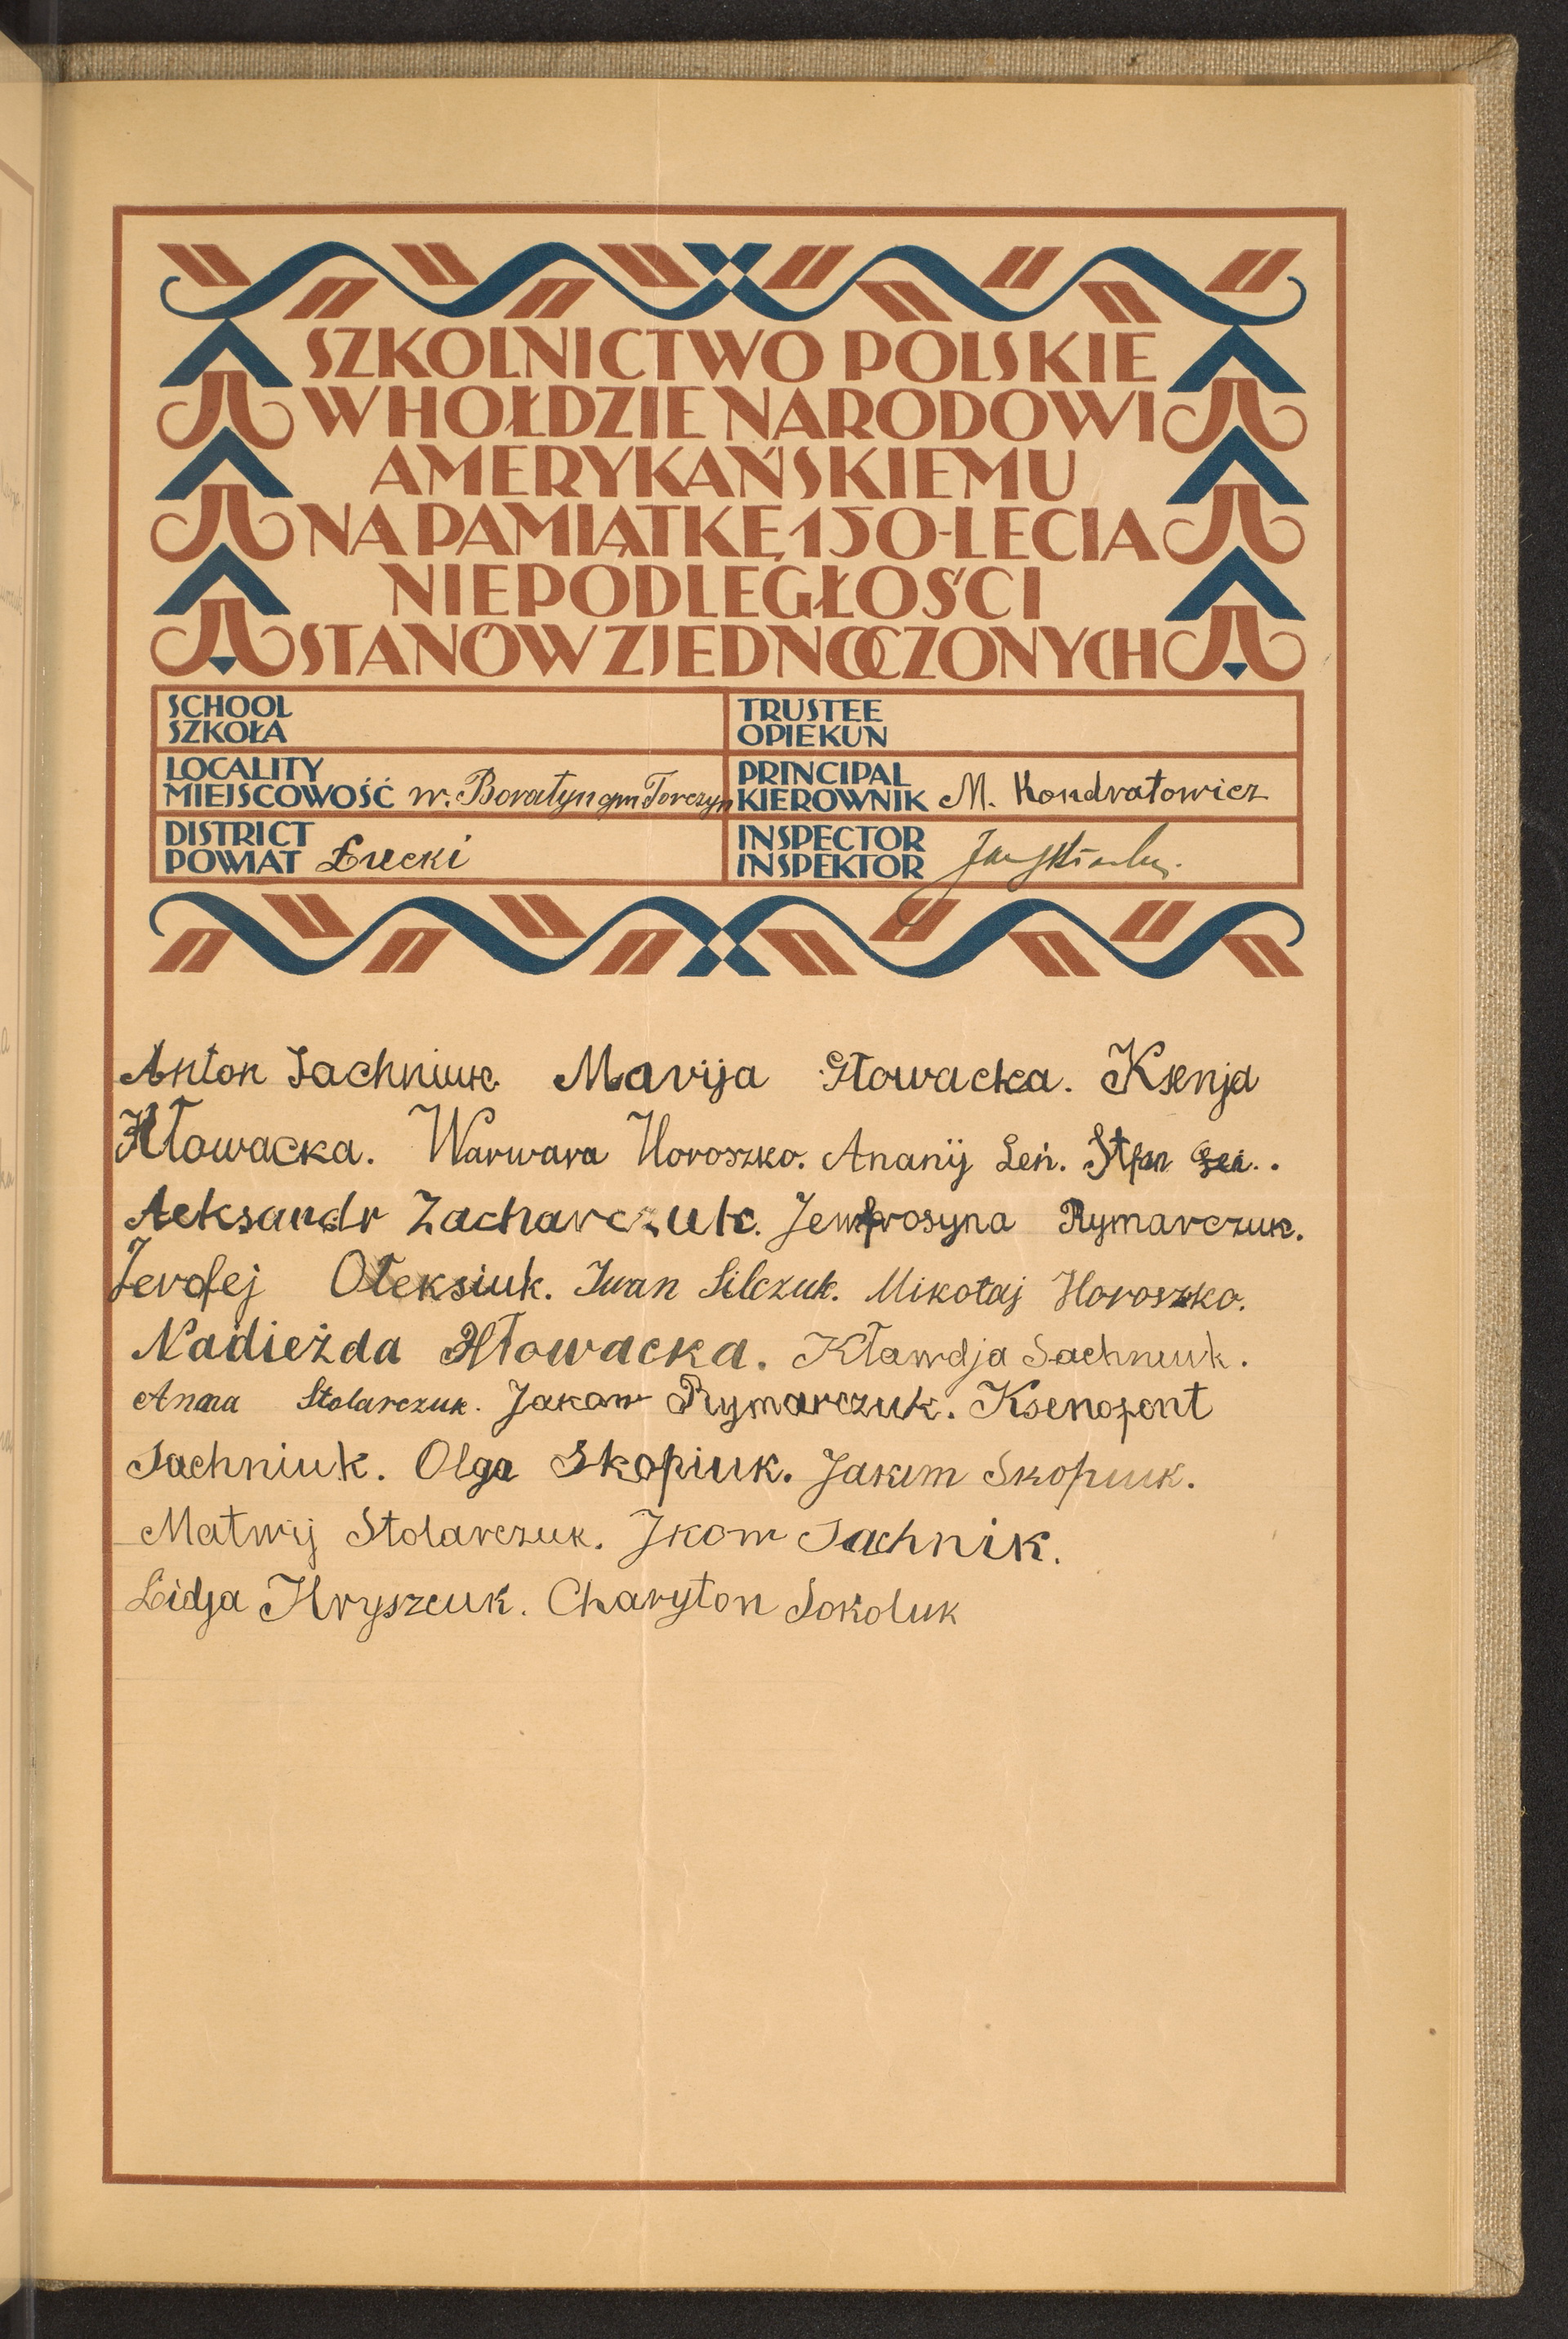 SZKOLNICTWO POLSKIE
W HOŁDZIE NARODOWI
AMERYKAŃSKIEMU
NA PAMIĄTKĘ 150-LECIA
NIEPODLEGŁOŚCI
STANÓW ZJEDNOCZONYCH
SCHOOL
SZKOŁA
TRUSTEE
OPIEKUN
LOCALITY
MIEJSCOWOŚĆ w. Boratyn gm Torczyn
PRINCIPAL
KIEROWNIK M. Kondratowicz
DISTRICT
POWIAT Łucki
INSPECTOR
INSPEKTOR
Anton Sachniuk Marija Głowacka. Ksenja
Hłowacka. Warwara Horoszko. Ananij Leń. Stpan
Aeksandr Zacharczuk. Jewfrosyna Rymarczuk.
Jerofej Ołeksiuk. Iwan Silczuk. Mikołaj Horoszko.
Nadieżda Hłowacka. Kławdja Sachniuk.
Anna Stolarczuk. Jakow Rymarczuk. Ksenofont
Sachniuk. Olga Skopiuk. Jakim Skopiuk.
Matwij Stolarczuk. Jkow Sachnik.
Lidja Hryszcuk. Charyton Sokoluk